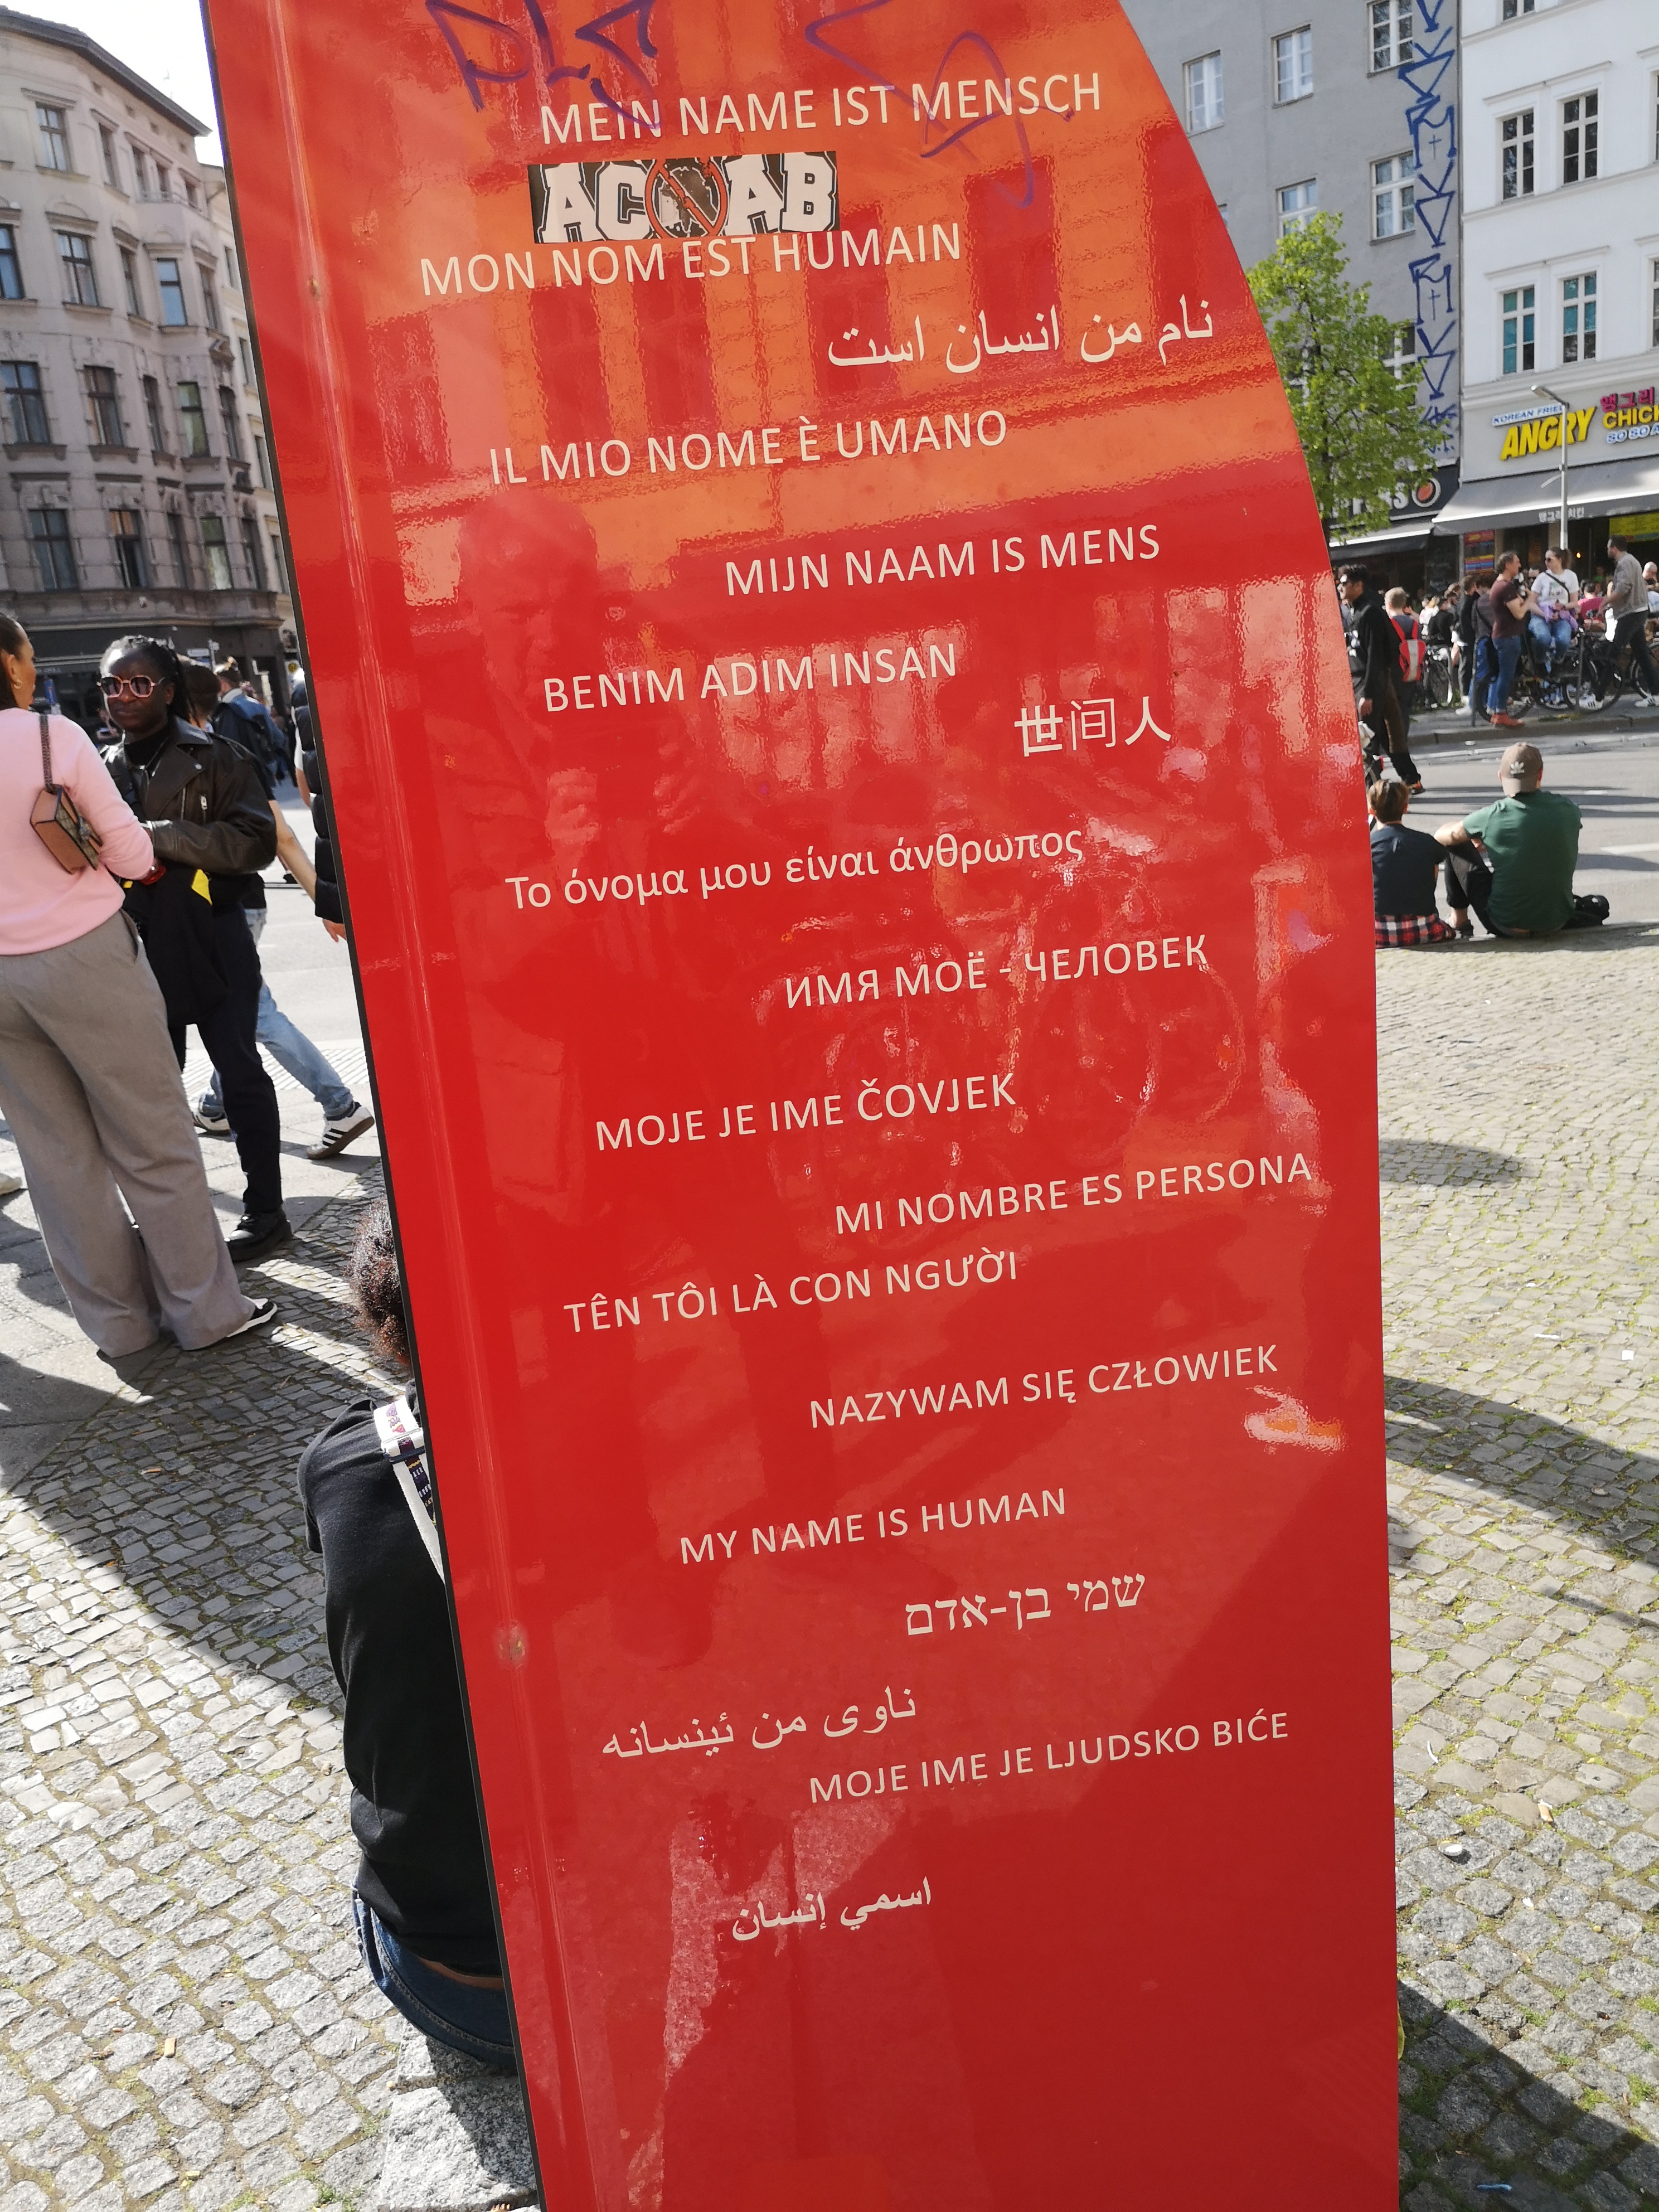 MEIN NAME IST MENSCH
ACAB
MON NOM EST HUMAIN
نام من انسان است
IL MIO NOME È UMANO
MIJN NAAM IS MENS
BENIM ADIM INSAN
世间人
Το όνομα μου είναι άνθρωπος
ИМЯ МОЁ - ЧЕЛОВЕК
MOJE JE IME ČOVJEK
MI NOMBRE ES PERSONA
TÊN TÔI LÀ CON NGƯỜI
NAZYWAM SIĘ CZŁOWIEK
MY NAME IS HUMAN
שמי בן-אדם
ناوی من ئینسانه
MOJE IME JE LJUDSKO BIĆE
اسمي إنسان
KOREAN FRIED
앵그리
ANGRY CHICK
SO SO
앵그리 치킨